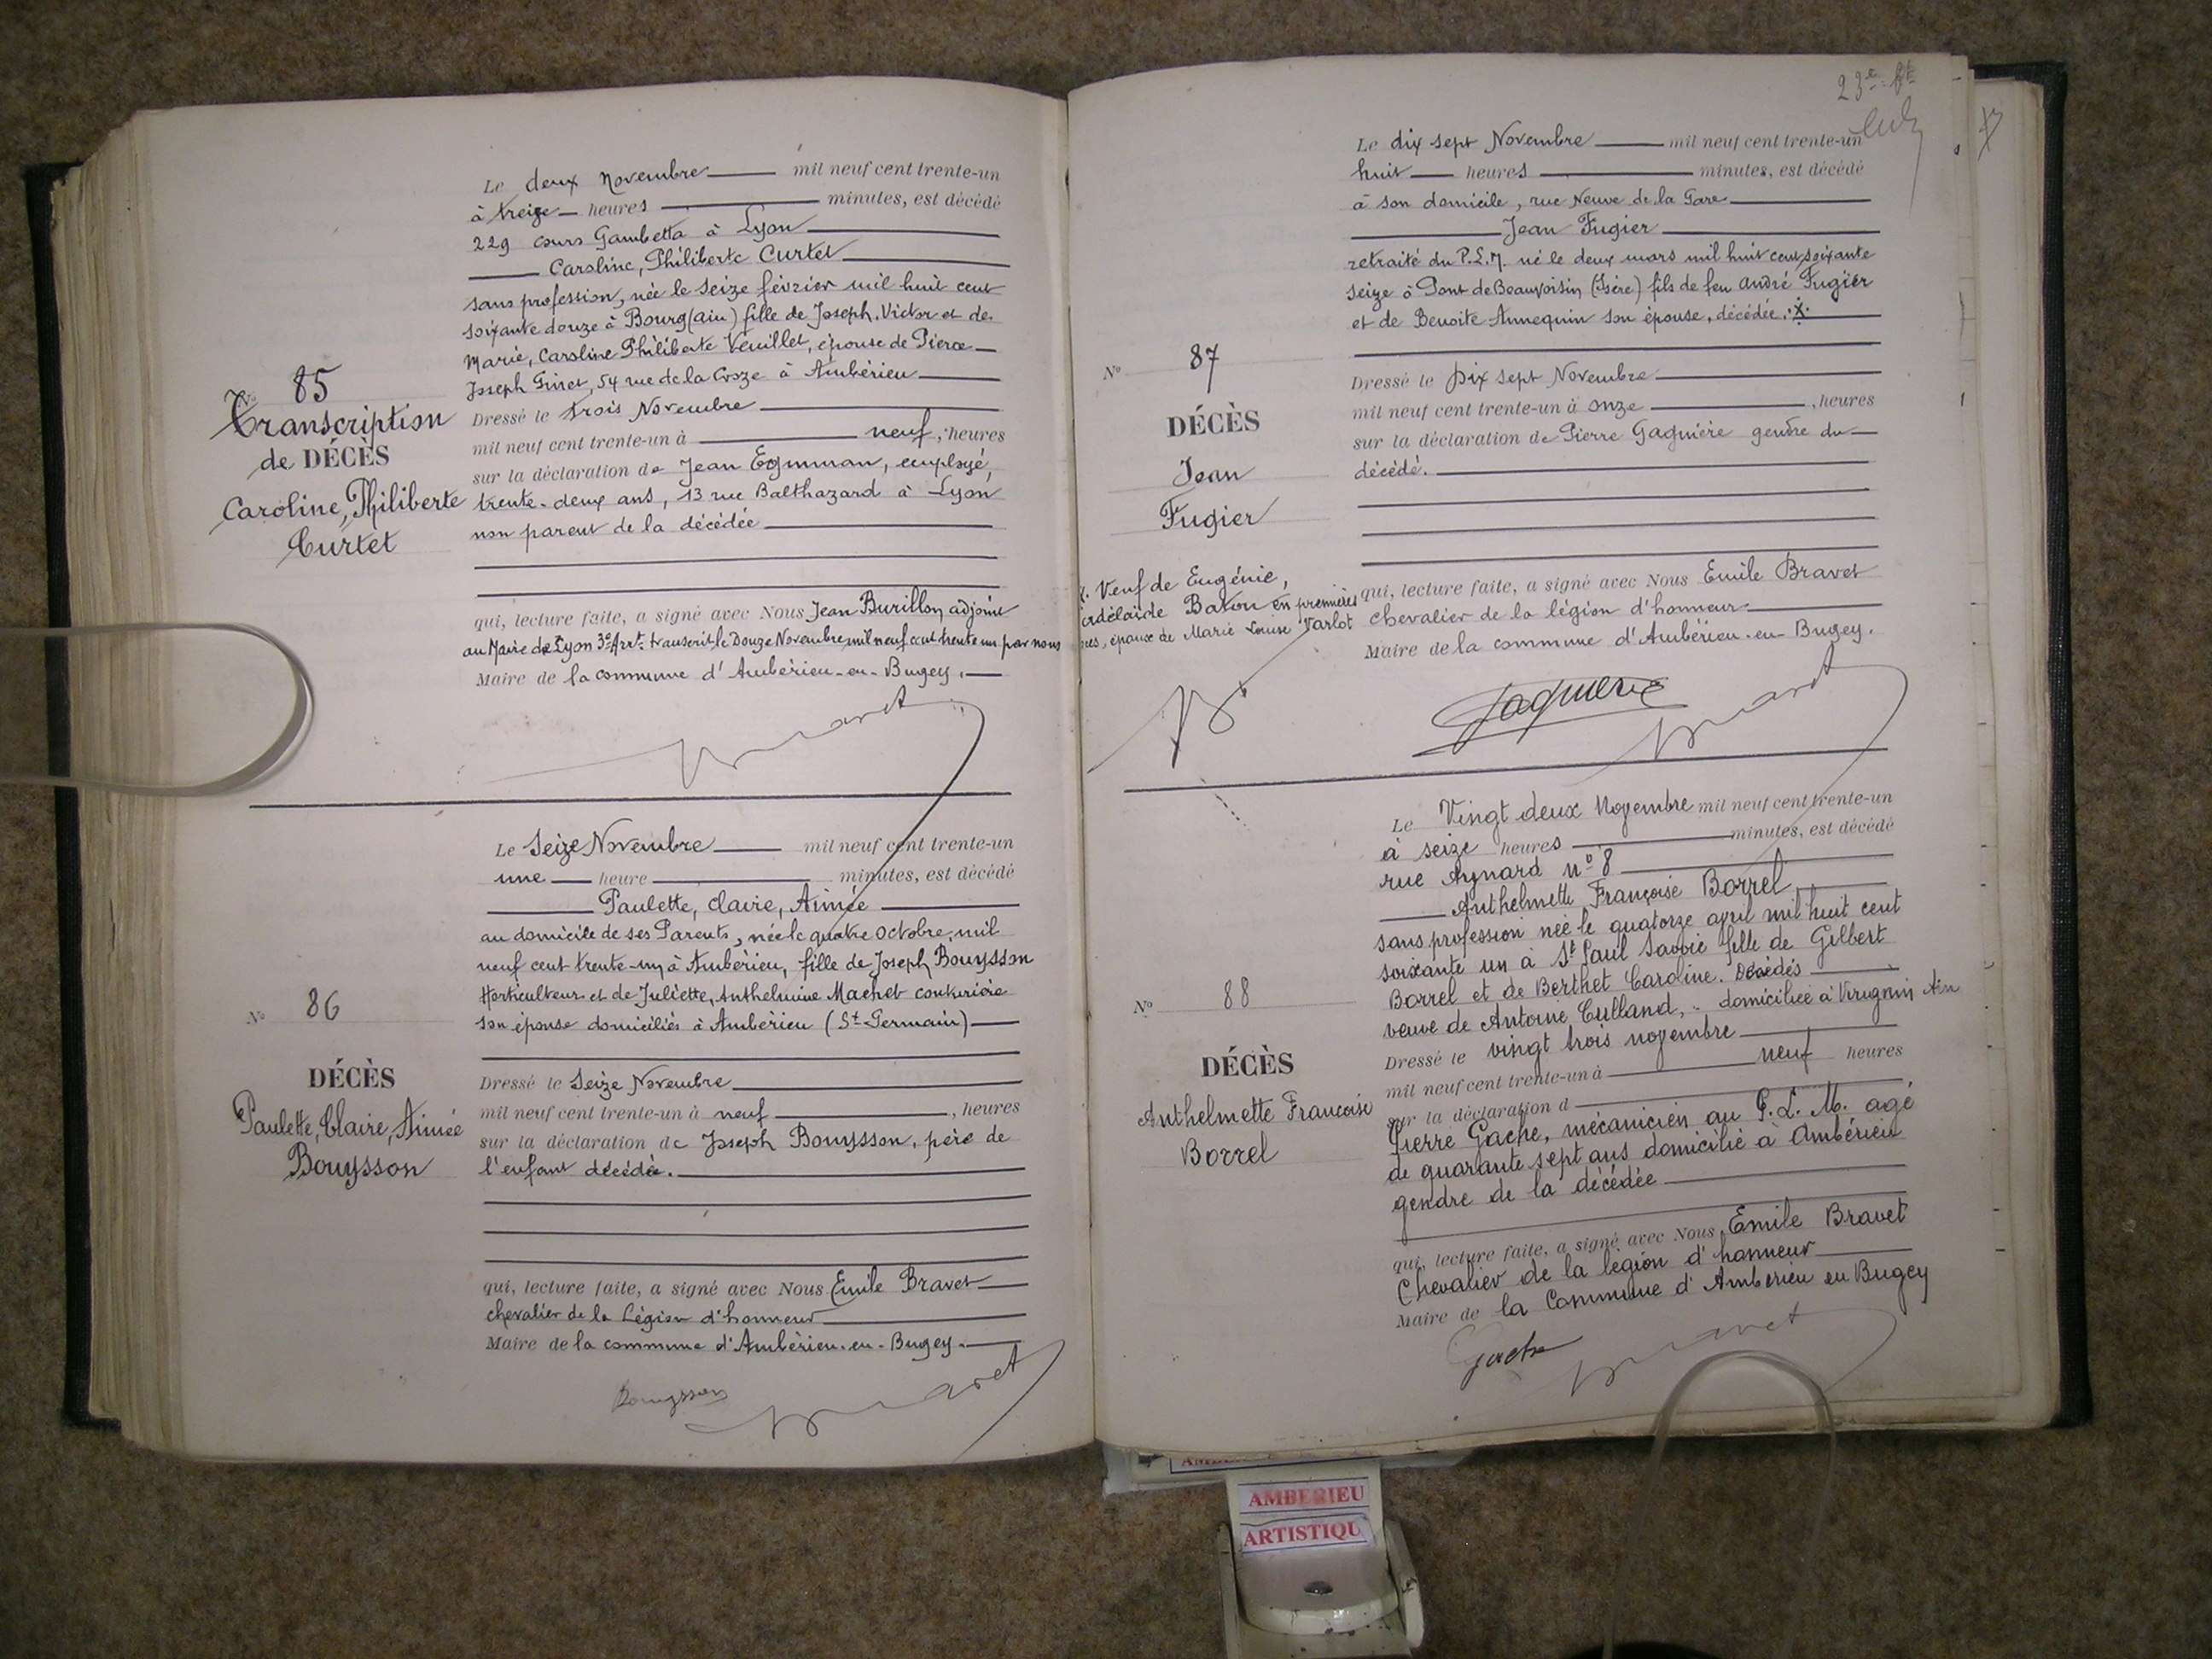 Le deux Novembre mil neuf cent trente-un
à treize heures minutes, est décédé
229 cours Gambetta à Lyon
Caroline, Philiberte Curtet
sans profession, née le seize février mil huit cent
soixante douze à Bourg (ain) fille de Joseph, Victor et de
Marie, Caroline Philiberte Veuillet, épouse de Pierre
Joseph Ginet, 54 rue de la Croze à Ambérieu
Dressé le trois Novembre
mil neuf cent trente-un à neuf, heures
sur la déclaration de Jean Egmman, employé,
trente-deux ans, 13 rue Balthazard à Lyon
non parent de la décédée
qui, lecture faite, a signé avec Nous Jean Burillon, adjoint
au Maire de Lyon 3e Arrt. transcrit le Douze Novembre mil neuf cent trente un par nous
Maire de la commune d'Ambérieu-en-Bugey.
No 85
Transcription
de DÉCÈS
Caroline, Philiberte
Curtet
Le Seize Novembre mil neuf cent trente-un
une heure minutes, est décédé
Paulette, Claire, Aimée
au domicile de ses Parents, née le quatre Octobre, mil
neuf cent trente-un à Ambérieu, fille de Joseph Bouysson
Horticulteur et de Juliette, Anthelmine Machet couturière
son épouse domiciliés à Ambérieu (St-Germain)
Dressé le Seize Novembre
mil neuf cent trente-un à neuf, heures
sur la déclaration de Joseph Bouysson, père de
l'enfant décédée.
qui, lecture faite, a signé avec Nous Emile Bravet
chevalier de la Légion d'honneur
Maire de la commune d'Ambérieu-en-Bugey.
Bouysson Bravet
No 86
DÉCÈS
Paulette, Claire, Aimée
Bouysson
23e ft
Le dix sept Novembre mil neuf cent trente-un
huit heures minutes, est décédé
à son domicile, rue Neuve de la Gare
Jean Fugier
retraité du P.L.M. né le deux mars mil huit cent soixante
seize à Pont de Beauvoisin (Isère) fils de feu André Fugier
et de Benoite Annequin son épouse, décédée. X.
Dressé le Dix sept Novembre
mil neuf cent trente-un à onze, heures
sur la déclaration de Pierre Gagnière gendre du
décédé.
qui, lecture faite, a signé avec Nous Emile Bravet
Chevalier de la légion d'honneur
Maire de la commune d'Ambérieu-en-Bugey.
Gagnière Bravet
No 87
DÉCÈS
Jean
Fugier
X. Veuf de Eugénie,
Adélaïde Baton en premières
époux de Marie Louise Varlot
Le Vingt deux Novembre mil neuf cent trente-un
à seize heures minutes, est décédé
rue Aynard no 8
Anthelmette Françoise Borrel
sans profession née le quatorze avril mil huit cent
soixante un à St Paul Savoie fille de Gilbert
Borrel et de Berthet Caroline. Décédés
veuve de Antoine Culland, domiciliée à Virignin Ain
Dressé le vingt trois novembre
mil neuf cent trente-un à neuf heures
sur la déclaration d
Pierre Gache, mécanicien au P.L.M. agé
de quarante sept ans domicilié à Ambérieu
gendre de la décédée
qui, lecture faite, a signé avec Nous Emile Bravet
Chevalier de la légion d'honneur
Maire de la Commune d'Ambérieu en Bugey
Gache Bravet
No 88
DÉCÈS
Anthelmette Françoise
Borrel
AMBERIEU
ARTISTIQU